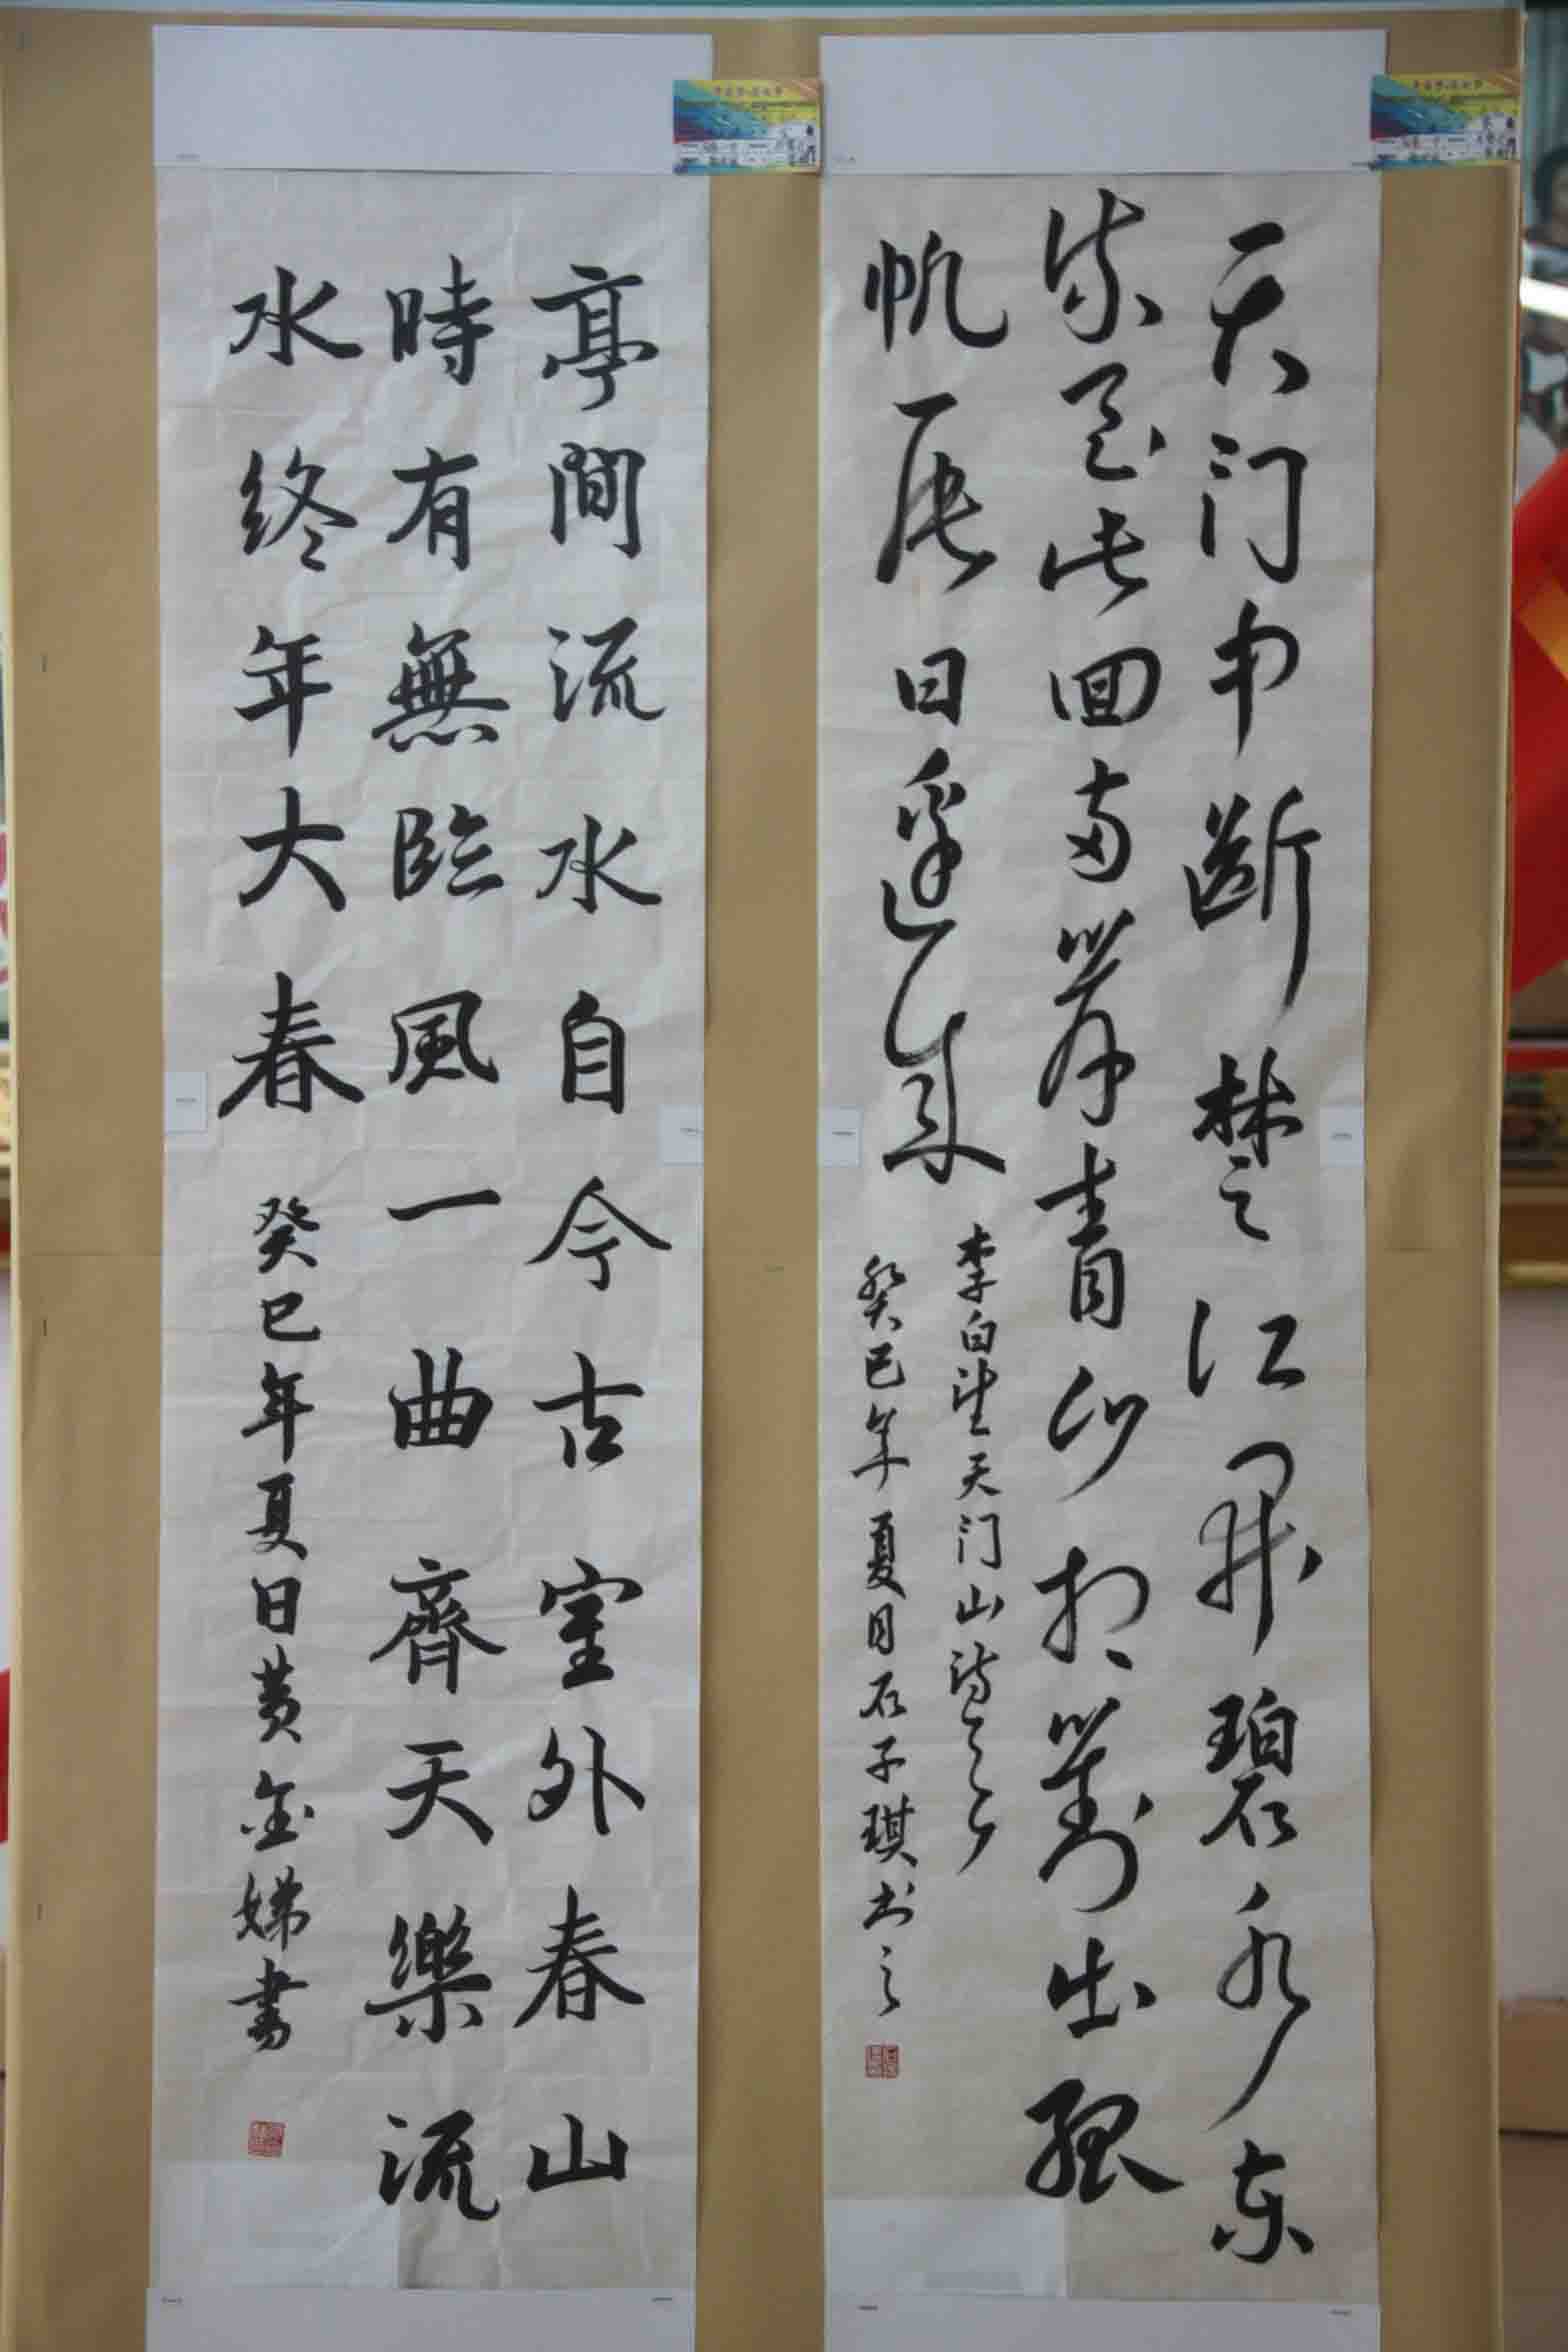 天门中断楚江開碧水东
流至此回两岸青山相對出孤
帆一片日邊来
李白望天门山诗
癸巳年夏月石子琪书之
亭間流水自今古室外春山
時有無臨風一曲齊天樂流
水終年大春
癸巳年夏日黄金娣書